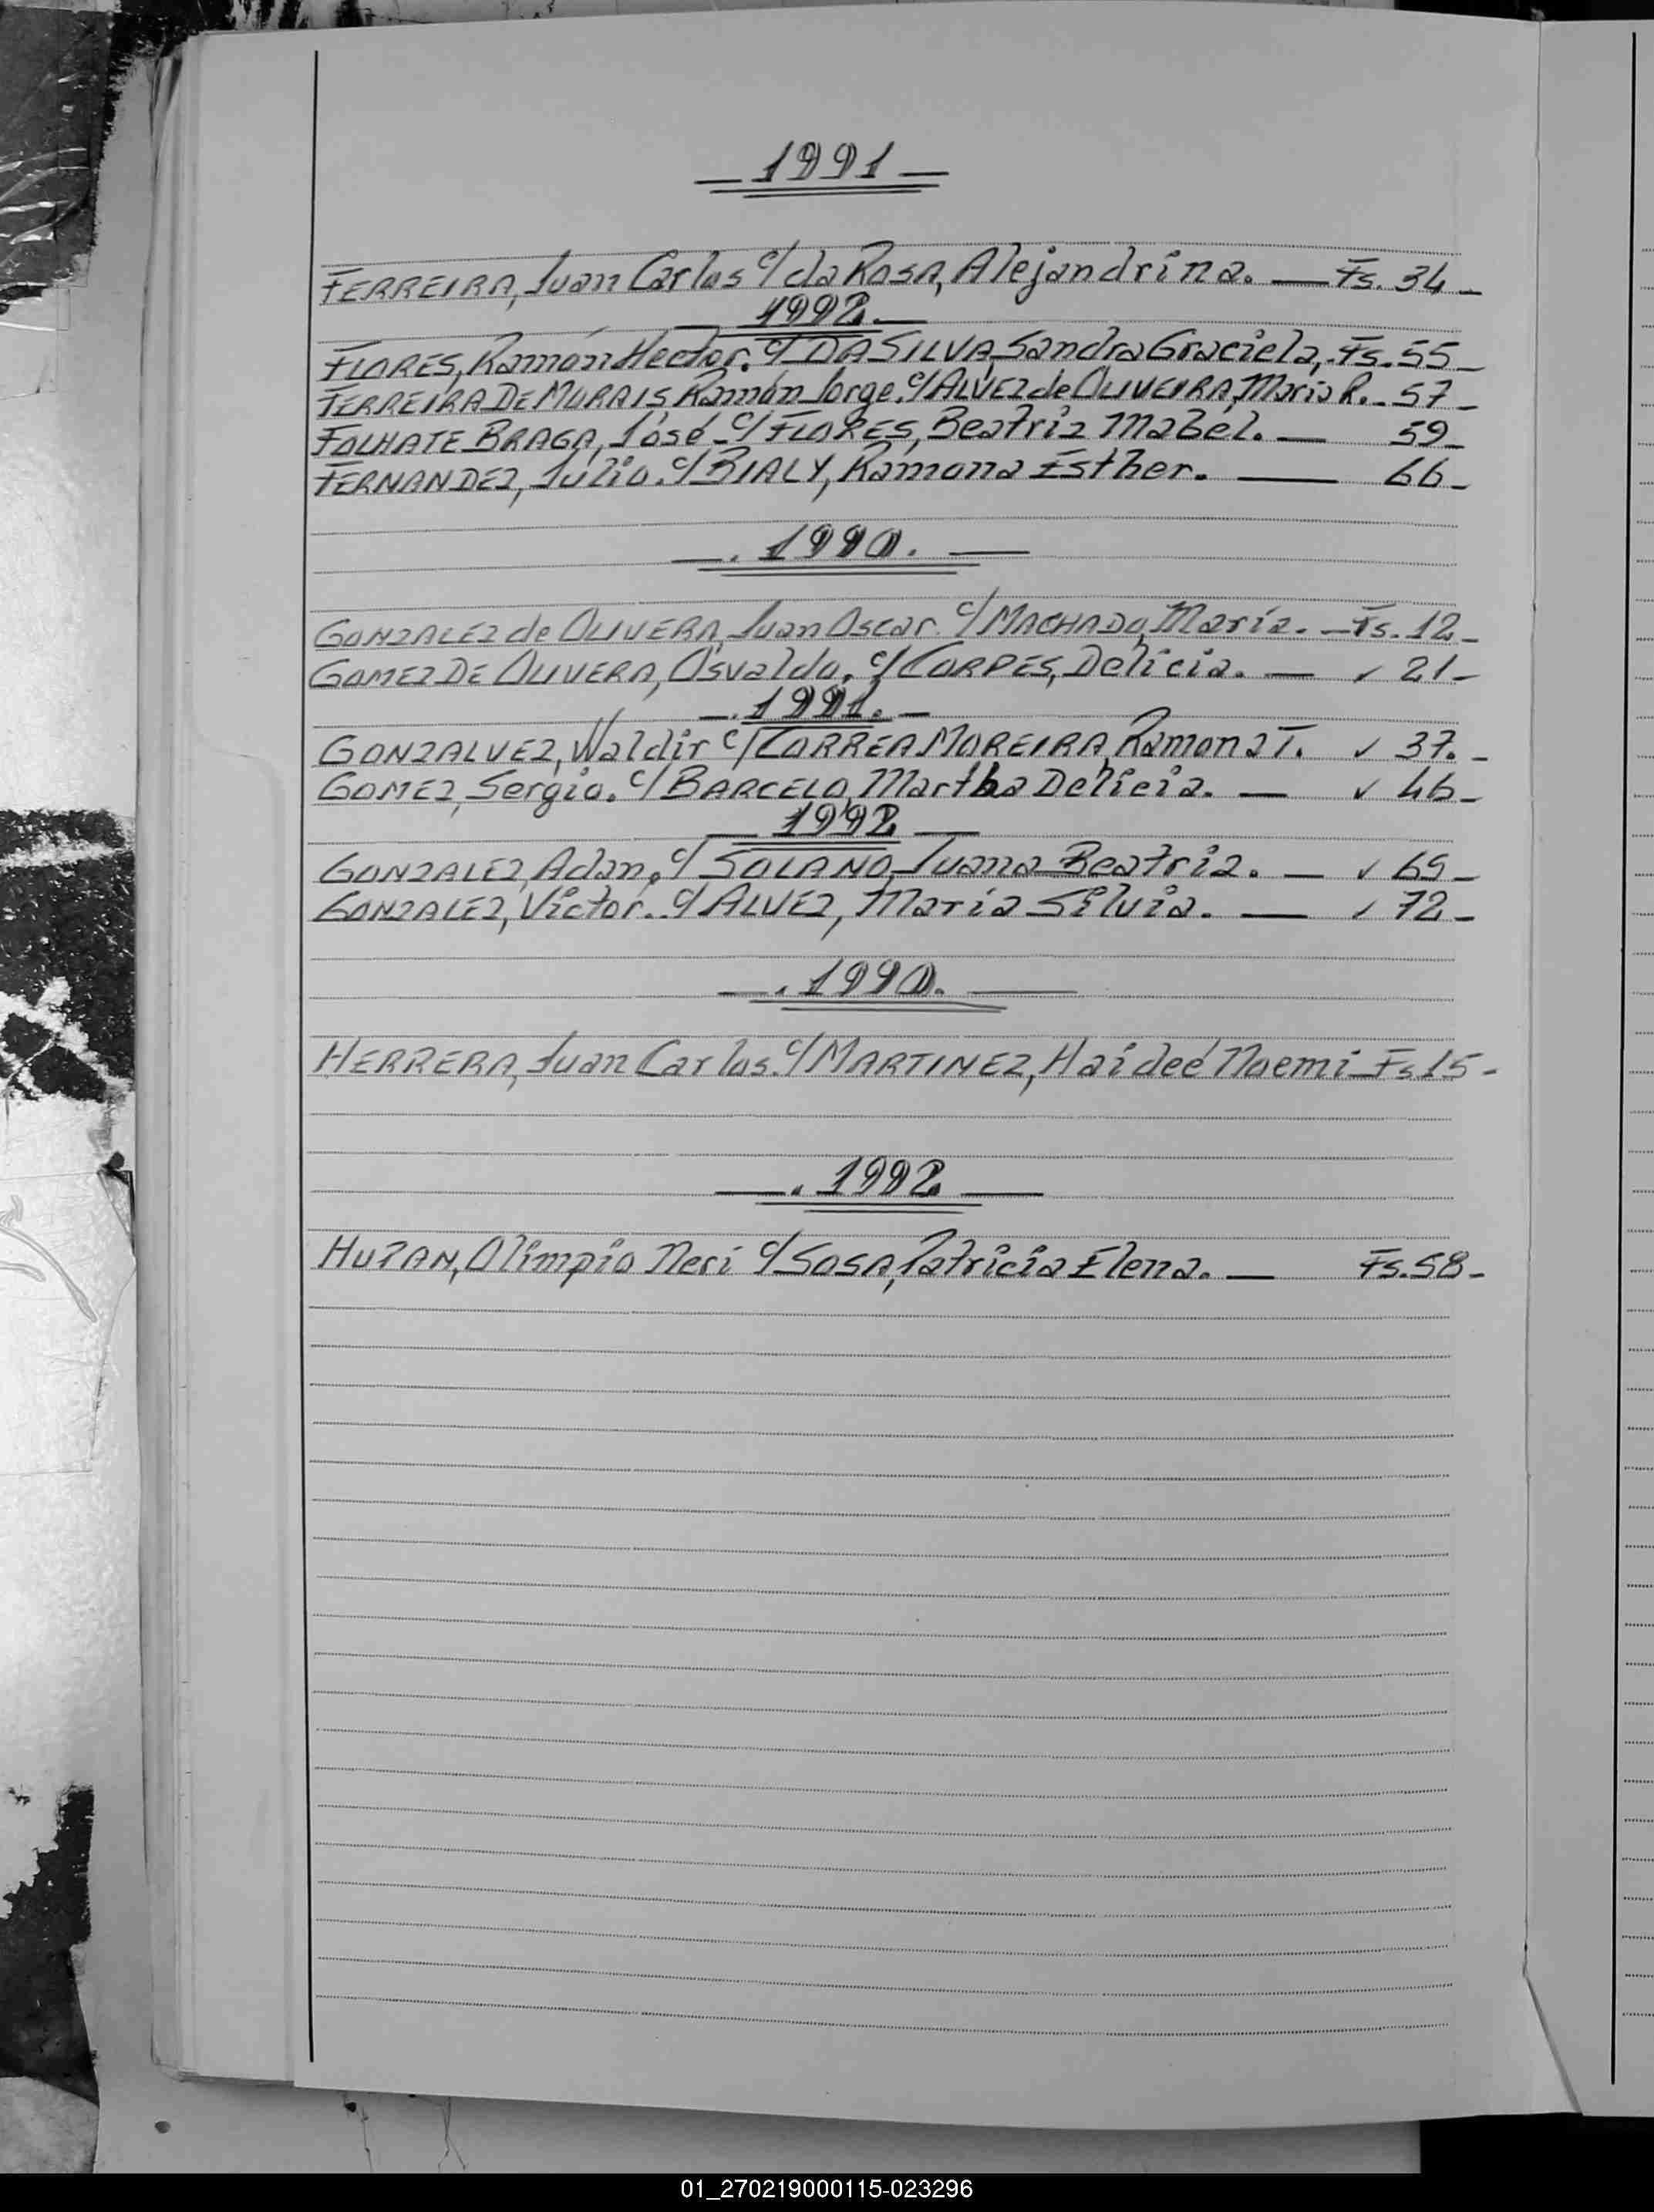 — 1991 —
FERREIRA, Juan Carlos c/ da ROSA, Alejandrina. — Fs. 34 -
— 1992. —
FLORES, Ramón Hector. c/ DA SILVA, Sandra Graciela, - Fs. 55 -
FERREIRA DE MORAIS, Ramón Jorge. c/ ALVEZ de OLIVEIRA, Maria R. - 57 -
FOLHATE BRAGA, José - c/ FLORES, Beatriz Mabel. — 59 -
FERNANDEZ, Julio. c/ BIALY, Ramona Esther. — 66 -
— . 1990. —
GONZALEZ de OLIVERA, Juan Oscar. c/ MACHADO, María. - Fs. 12 -
GOMEZ DE OLIVERA, Osvaldo. c/ CORPES, Delicia. — ✓ 21 -
— . 1991. —
GONZALVEZ, Waldir c/ CORREA MOREIRA, Ramona T. ✓ 37. -
GOMEZ, Sergio. c/ BARCELO, Martha Delicia. — ✓ 46 -
— 1992 —
GONZALEZ, Adan, c/ SOLANO, Juana Beatriz. — ✓ 69 -
GONZALEZ, Victor. c/ ALVEZ, María Silvia. — ✓ 72 -
— . 1990. —
HERRERA, Juan Carlos. c/ MARTINEZ, Haideé Noemi - Fs 15 -
— . 1992 —
HUZAN, Olimpio Neri c/ SOSA, Patricia Elena. — Fs. 58 -
01_270219000115-023296